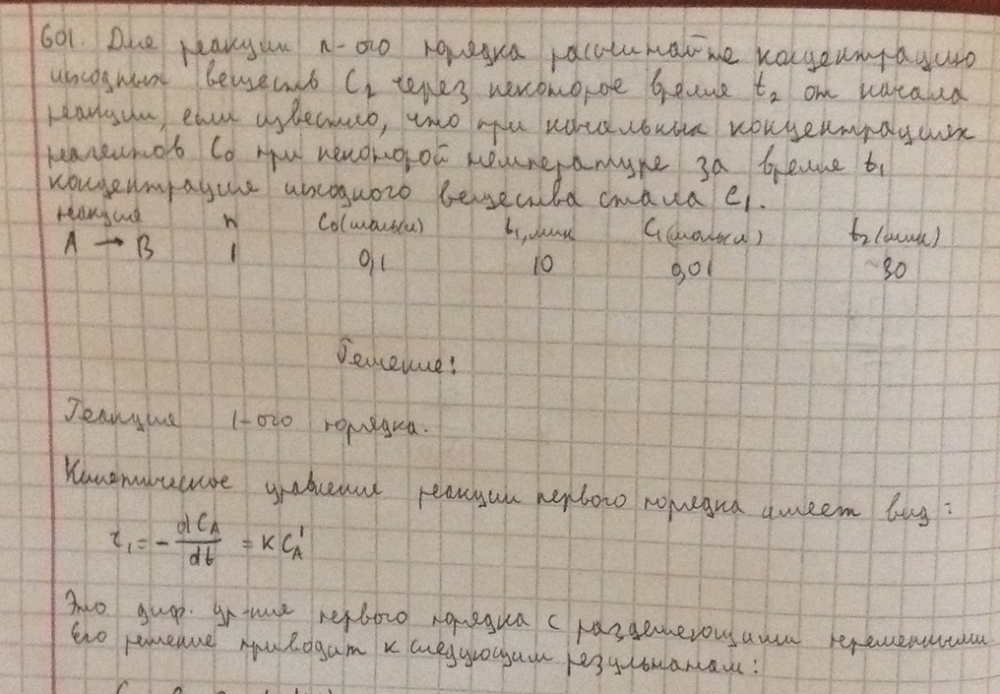 601. Для реакции n-ого порядка рассчитайте концентрацию
исходных веществ C₂ через некоторое время t₂ от начала
реакции, если известно, что при начальных концентрациях
реагентов C₀ при некоторой температуре за время t₁
концентрация исходного вещества стала C₁.
реакция n C₀(моль/л) t₁, мин C₁(моль/л) t₂(мин)
A → B 1 0,1 10 0,01 30
Решение:
Реакция 1-ого порядка.
Кинетическое уравнение реакции первого порядка имеет вид:
r₁ = - dC_A/dt = K C_A¹
Это диф. ур-ние первого порядка с разделяющими переменными.
Его решение приводит к следующим результатам: